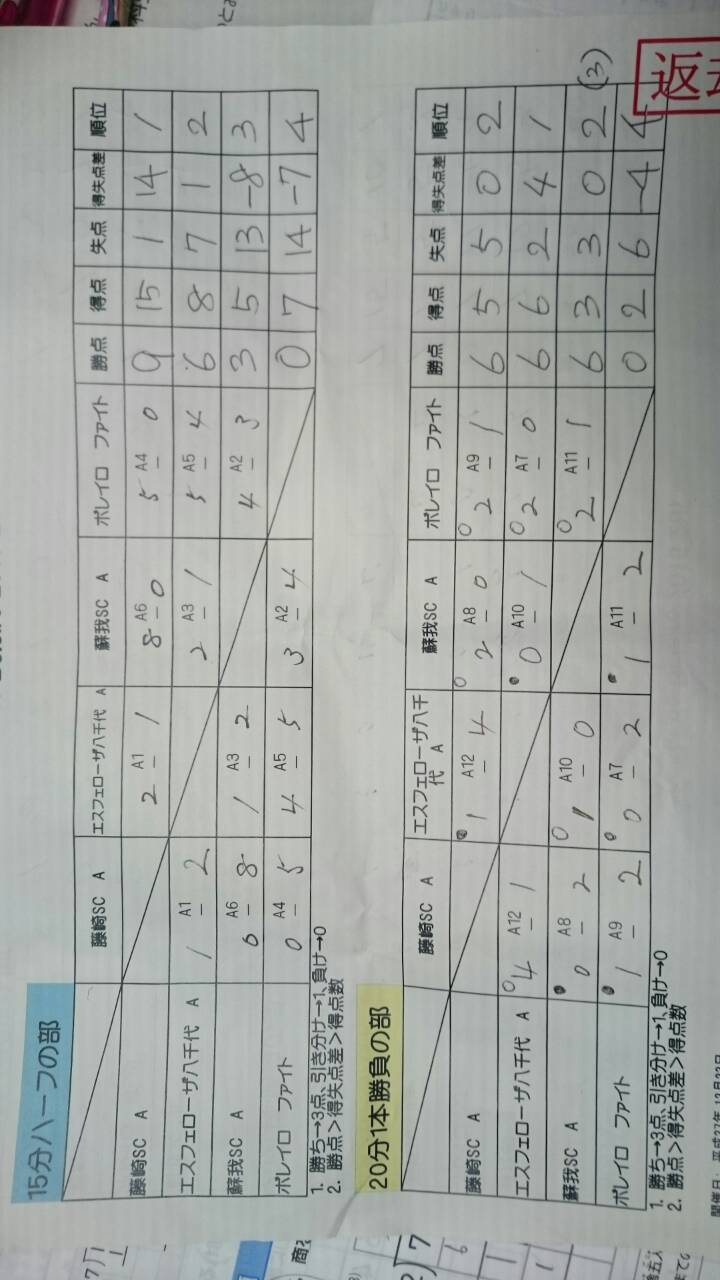 15分ハーフの部
藤崎SC A エスフェローザ八千代 A 蘇我SC A ボレイロ ファイト 勝点 得点 失点 得失点差 順位
藤崎SC A A1 2 - 1 A6 8 - 0 A4 5 - 0 9 15 1 14 1
エスフェローザ八千代 A A1 1 - 2 A3 2 - 1 A5 5 - 4 6 8 7 1 2
蘇我SC A A6 0 - 8 A3 1 - 2 A2 4 - 3 3 5 13 -8 3
ボレイロ ファイト A4 0 - 5 A5 4 - 5 A2 3 - 4 0 7 14 -7 4
1. 勝ち→3点、引き分け→1、負け→0
2. 勝点>得失点差>得点数
20分1本勝負の部
藤崎SC A エスフェローザ八千代 A 蘇我SC A ボレイロ ファイト 勝点 得点 失点 得失点差 順位
藤崎SC A A12 1 - 4 A8 2 - 0 A9 2 - 1 6 5 5 0 2
エスフェローザ八千代 A A12 4 - 1 A10 0 - 1 A7 2 - 0 6 6 2 4 1
蘇我SC A A8 0 - 2 A10 1 - 0 A11 2 - 1 6 3 3 0 2 (3)
ボレイロ ファイト A9 1 - 2 A7 0 - 2 A11 1 - 2 0 2 6 -4 4
1. 勝ち→3点、引き分け→1、負け→0
2. 勝点>得失点差>得点数
返却